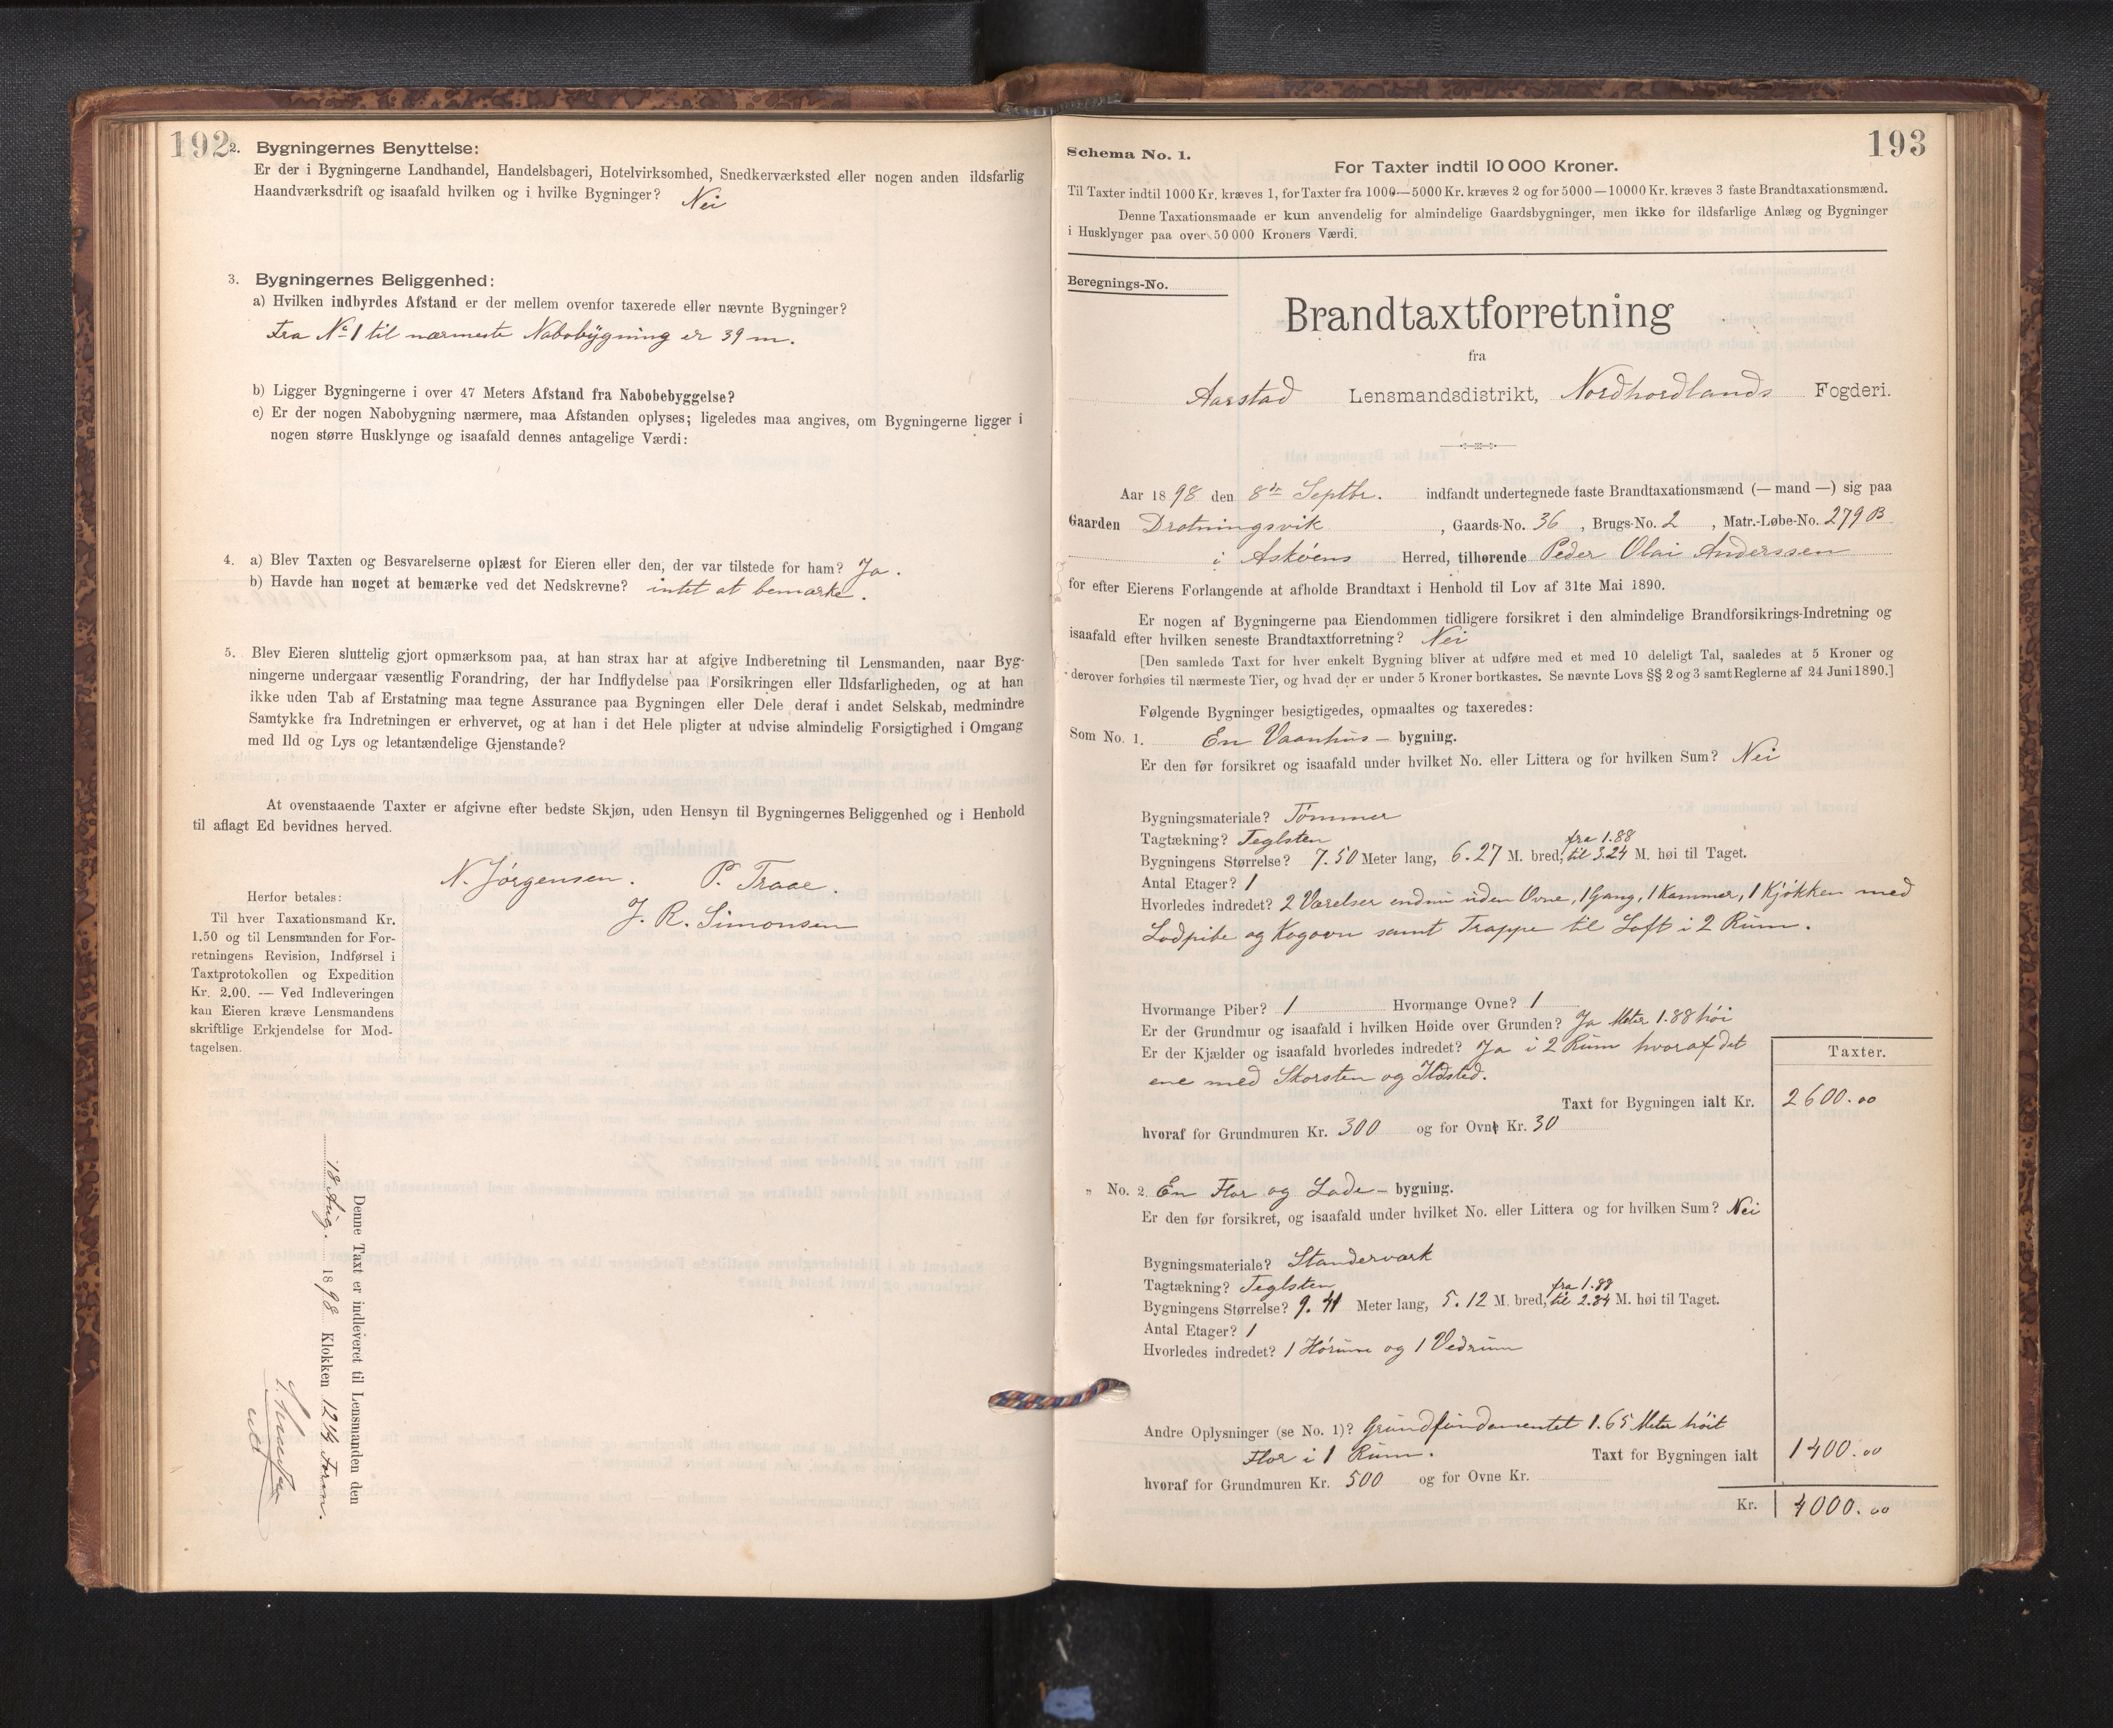 192
2. Bygningernes Benyttelse:
Er der i Bygningerne Landhandel, Handelsbageri, Hotelvirksomhed, Snedkerværksted eller nogen anden ildsfarlig
Haandværksdrift og isaafald hvilken og i hvilke Bygninger? Nei
3. Bygningernes Beliggenhed:
a) Hvilken indbyrdes Afstand er der mellem ovenfor taxerede eller nævnte Bygninger?
Fra No 1 til nærmeste Nabobygning er 39 m.
b) Ligger Bygningerne i over 47 Meters Afstand fra Nabobebyggelse?
c) Er der nogen Nabobygning nærmere, maa Afstanden oplyses; ligeledes maa angives, om Bygningerne ligger i
nogen større Husklynge og isaafald dennes antagelige Værdi:
4. a) Blev Taxten og Besvarelserne oplæst for Eieren eller den, der var tilstede for ham? Ja.
b) Havde han noget at bemærke ved det Nedskrevne? intet at bemærke.
5. Blev Eieren sluttelig gjort opmærksom paa, at han strax har at afgive Indberetning til Lensmanden, naar Byg-
ningerne undergaar væsentlig Forandring, der har Indflydelse paa Forsikringen eller Ildsfarligheden, og at han
ikke uden Tab af Erstatning maa tegne Assurance paa Bygningen eller Dele deraf i andet Selskab, medmindre
Samtykke fra Indretningen er erhvervet, og at han i det Hele pligter at udvise almindelig Forsigtighed i Omgang
med Ild og Lys og letantændelige Gjenstande?
At ovenstaaende Taxter er afgivne efter bedste Skjøn, uden Hensyn til Bygningernes Beliggenhed og i Henhold
til aflagt Ed bevidnes herved.
N. Jørgensen. P. Traae.
J. R. Simonsen
Herfor betales:
Til hver Taxationsmand Kr.
1.50 og til Lensmanden for For-
retningens Revision, Indførsel i
Taxtprotokollen og Expedition
Kr. 2.00. — Ved Indleveringen
kan Eieren kræve Lensmandens
skriftlige Erkjendelse for Mod-
tagelsen.
Denne Taxt er indleveret til Lensmanden den
18 Aug. 1898 Klokken 12 1/4 Form.
193
Schema No. 1.
For Taxter indtil 10 000 Kroner.
Til Taxter indtil 1000 Kr. kræves 1, for Taxter fra 1000—5000 Kr. kræves 2 og for 5000—10000 Kr. kræves 3 faste Brandtaxationsmænd.
Denne Taxationsmaade er kun anvendelig for almindelige Gaardsbygninger, men ikke for ildsfarlige Anlæg og Bygninger
i Husklynger paa over 50 000 Kroners Værdi.
Beregnings-No.
Brandtaxtforretning
fra
Aarstad Lensmandsdistrikt, Nordhordlands Fogderi.
Aar 1898 den 8de Septbr. indfandt undertegnede faste Brandtaxationsmænd (— mand —) sig paa
Gaarden Drotningsvik, Gaards-No. 36, Brugs-No. 2, Matr.-Løbe-No. 279 B
i Askøens Herred, tilhørende Peder Olai Anderssen
for efter Eierens Forlangende at afholde Brandtaxt i Henhold til Lov af 31te Mai 1890.
Er nogen af Bygningerne paa Eiendommen tidligere forsikret i den almindelige Brandforsikrings-Indretning og
isaafald efter hvilken seneste Brandtaxtforretning? Nei
[Den samlede Taxt for hver enkelt Bygning bliver at udføre med et med 10 deleligt Tal, saaledes at 5 Kroner og
derover forhøies til nærmeste Tier, og hvad der er under 5 Kroner bortkastes. Se nævnte Lovs §§ 2 og 3 samt Reglerne af 24 Juni 1890.]
Følgende Bygninger besigtigedes, opmaaltes og taxeredes:
Som No. 1. En Vaanhus – bygning.
Er den før forsikret og isaafald under hvilket No. eller Littera og for hvilken Sum? Nei
Bygningsmateriale? Tømmer
Tagtækning? Teglsten
fra 1.88
Bygningens Størrelse? 7.50 Meter lang, 6.27 M. bred, til 3.24 M. høi til Taget.
Antal Etager? 1
Hvorledes indredet? 2 Værelser endnu uden Ovne, 1 Gang, 1 Kammer, 1 Kjøkken med
Lodpibe og Kogovn samt Trappe til Loft i 2 Rum.
Hvormange Piber? 1 Hvormange Ovne? 1
Er der Grundmur og isaafald i hvilken Høide over Grunden? Ja Meter 1.88 høi
Er der Kjælder og isaafald hvorledes indredet? Ja i 2 Rum hvoraf det
ene med Skorsten og Ildsted.
Taxter.
Taxt for Bygningen ialt Kr. 2600.00
hvoraf for Grundmuren Kr. 300 og for Ovne Kr. 30
„ No. 2. En Flor og Lade – bygning.
Er den før forsikret, og isaafald under hvilket No. eller Littera og for hvilken Sum? Nei
Bygningsmateriale? Standerværk
Tagtækning? Teglsten
fra 1.88
Bygningens Størrelse? 9.41 Meter lang, 5.12 M. bred, til 2.84 M. høi til Taget.
Antal Etager? 1
Hvorledes indredet? 1 Hørum og 1 Vedrum
Andre Oplysninger (se No. 1)? Grundfundamentet 1.65 Meter høit
Flor i 1 Rum. Taxt for Bygningen ialt 1400.00
hvoraf for Grundmuren Kr. 500 og for Ovne Kr.
Kr. 4000.00